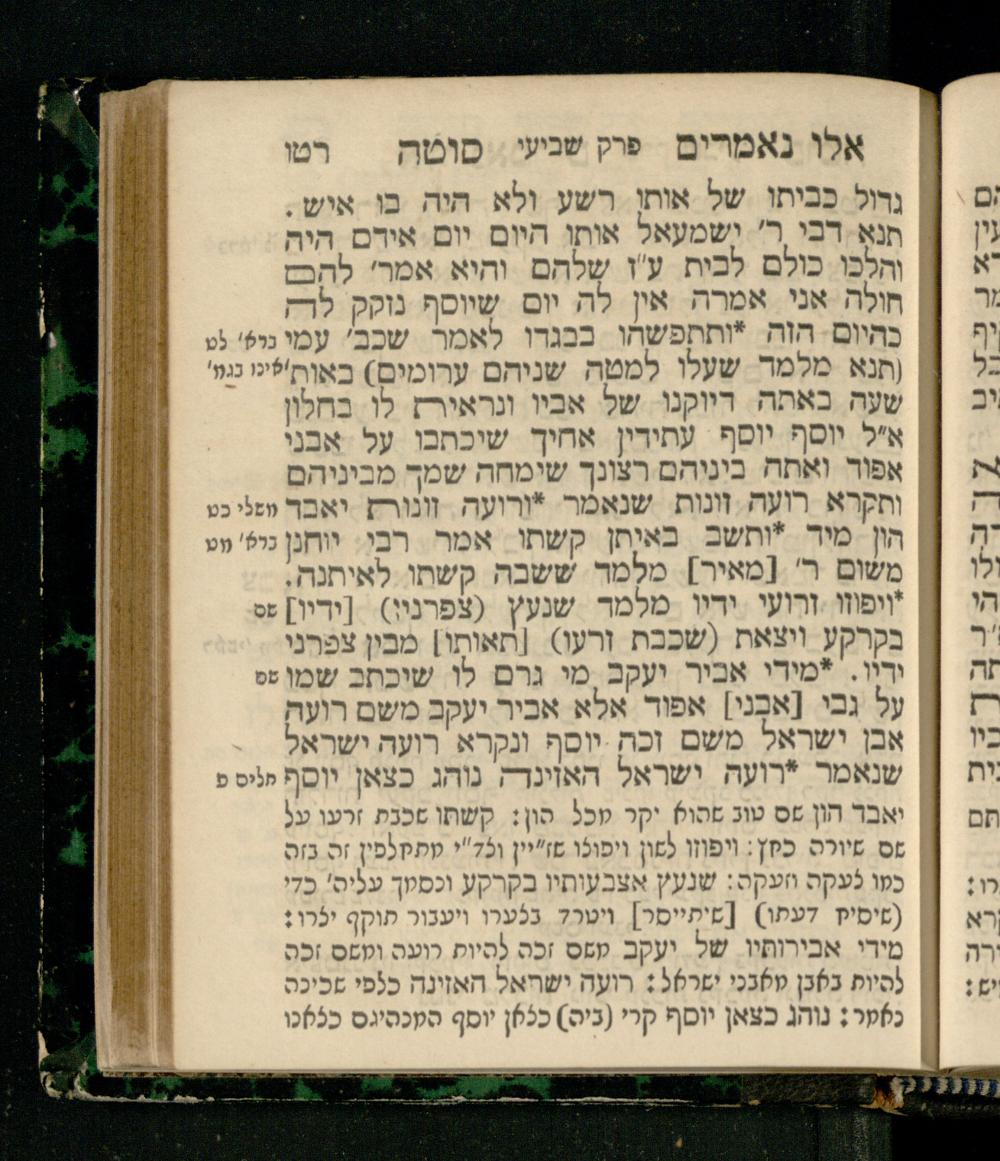 אלו נאמרים פרק שביעי סוטה רטו
גדול כביתו של אותו רשע ולא היה בו איש.
תנא דבי ר׳ ישמעאל אותו היום יום אידם היה
והלכו כולם לבית ע״ז שלהם והיא אמר׳ להם
חולה אני אמרה אין לה יום שיוסף נזקק לה
כהיום הזה *ותתפשהו בבגדו לאמר שכב׳ עמי ברא׳ לט
(תנא מלמד שעלו למטה שניהם ערומים) באות׳ אינו בגמ׳
שעה באתה דיוקנו של אביו ונראית לו בחלון
א״ל יוסף יוסף עתידין אחיך שיכתבו על אבני
אפוד ואתה ביניהם רצונך שימחה שמך מביניהם
ותקרא רועה זונות שנאמר *ורועה זונות יאבד משלי כט
הון מיד *ותשב באיתן קשתו אמר רבי יוחנן ברא׳ מט
משום ר׳ [מאיר] מלמד ששבה קשתו לאיתנה.
*ויפוזו זרועי ידיו מלמד שנעץ (צפרניו) [ידיו] שם
בקרקע ויצאת (שכבת זרעו) [תאותו] מבין צפרני
ידיו. *מידי אביר יעקב מי גרם לו שיכתב שמו שם
על גבי [אבני] אפוד אלא אביר יעקב משם רועה
אבן ישראל משם זכה יוסף ונקרא רועה ישראל
שנאמר *רועה ישראל האזינה נוהג כצאן יוסף תלים פ
יאבד הון שם טוב שהוא יקר מכל הון: קשתו שכבת זרעו על
שם שיורה כחץ: ויפוזו לשון ויפוצו שז״יין וצד״י מתחלפין זה בזה
כמו צעקה וזעקה: שנעץ אצבעותיו בקרקע ונסמך עליה׳ כדי
(שיסיח דעתו) [שיתייסר] ויטרד בצערו ויעבור תוקף יצרו:
מידי אבירותיו של יעקב משם זכה להיות רועה ומשם זכה
להיות באבן מאבני ישראל: רועה ישראל האזינה כלפי שכינה
נאמר: נוהג כצאן יוסף קרי (ביה) כצאן יוסף המנהיגם כצאנו